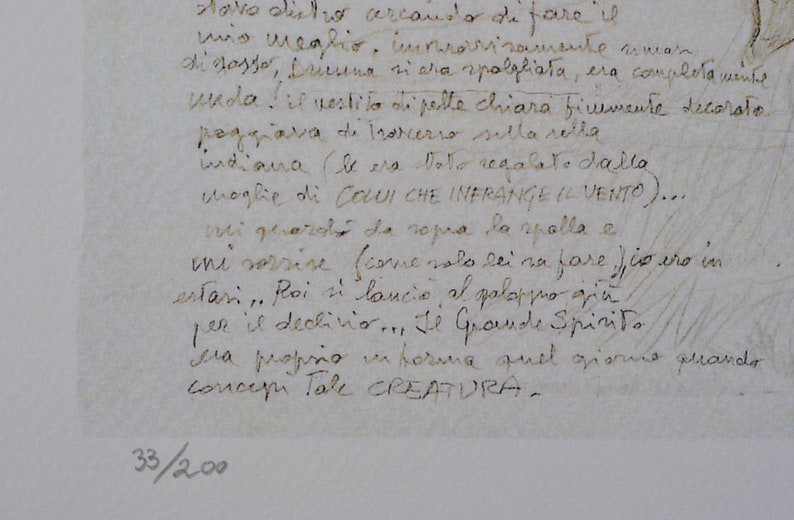 stavo dietro cercando di fare il
mio meglio. improvvisamente riman
di sasso, si era spogliata, era completamente
nuda. il vestito di pelle chiara finemente decorato
poggiava di traverso sulla sella
indiana (le era stato regalato dalla
moglie di COLUI CHE INFRANGE IL VENTO)...
mi guardò da sopra la spalla e
mi sorrise (come solo lei sa fare), io ero in
estasi... Poi si lanciò al galoppo giù
per il declivio... Il Grande Spirito
era proprio in forma quel giorno quando
concepì Tale CREATURA.
33/200